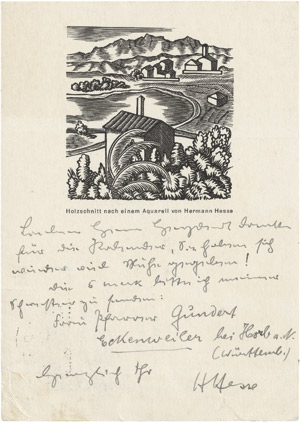 Holzschnitt nach einem Aquarell von Hermann Hesse
Herr
für die Kalender, Sie haben sich
wieder viel Mühe gegeben!
die 5 mark bitte ich meiner
Schwester zu senden:
Frau Pfarrer Gundert
Eckenweiler bei Horb a. N.
(Württemb.)
Herzlich Ihr
HHesse